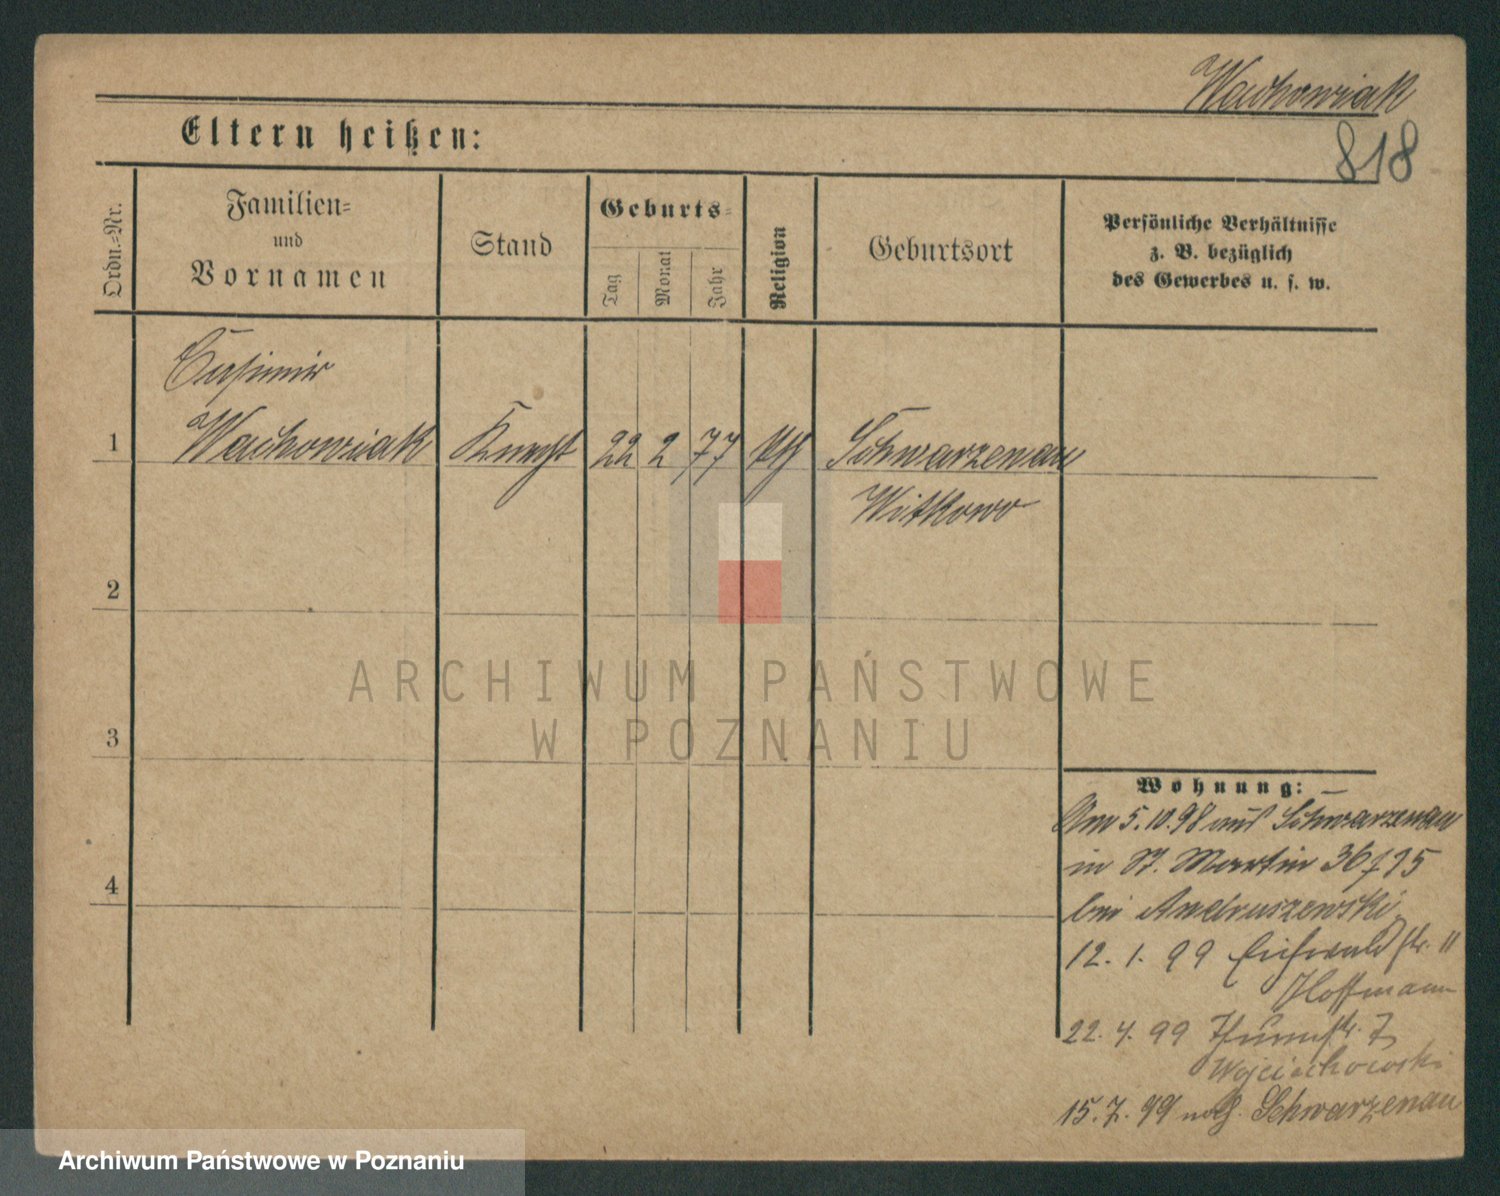 Wachowiak
818
Eltern heißen:
Ordn.=Nr.
Familien=
und
Vornamen
Stand
Geburts=
Tag
Monat
Jahr
Religion
Geburtsort
Persönliche Verhältnisse
z. B. bezüglich
des Gewerbes u. s. w.
Casimir
1 Wachowiak Knecht 22 2 77 kth Schwarzenau
Witkowo
2
3
4
Wohnung: —
Am 5.10.98 aus Schwarzenau
in St. Martin 36/
bei Andruszewski
12. 1. 99 Eichwaldstr. 11
Hoffmann
22. 4. 99 Thurmstr. 7
Wojciechowski
15. 7. 99 nach Schwarzenau
ARCHIWUM PAŃSTWOWE
W POZNANIU
Archiwum Państwowe w Poznaniu